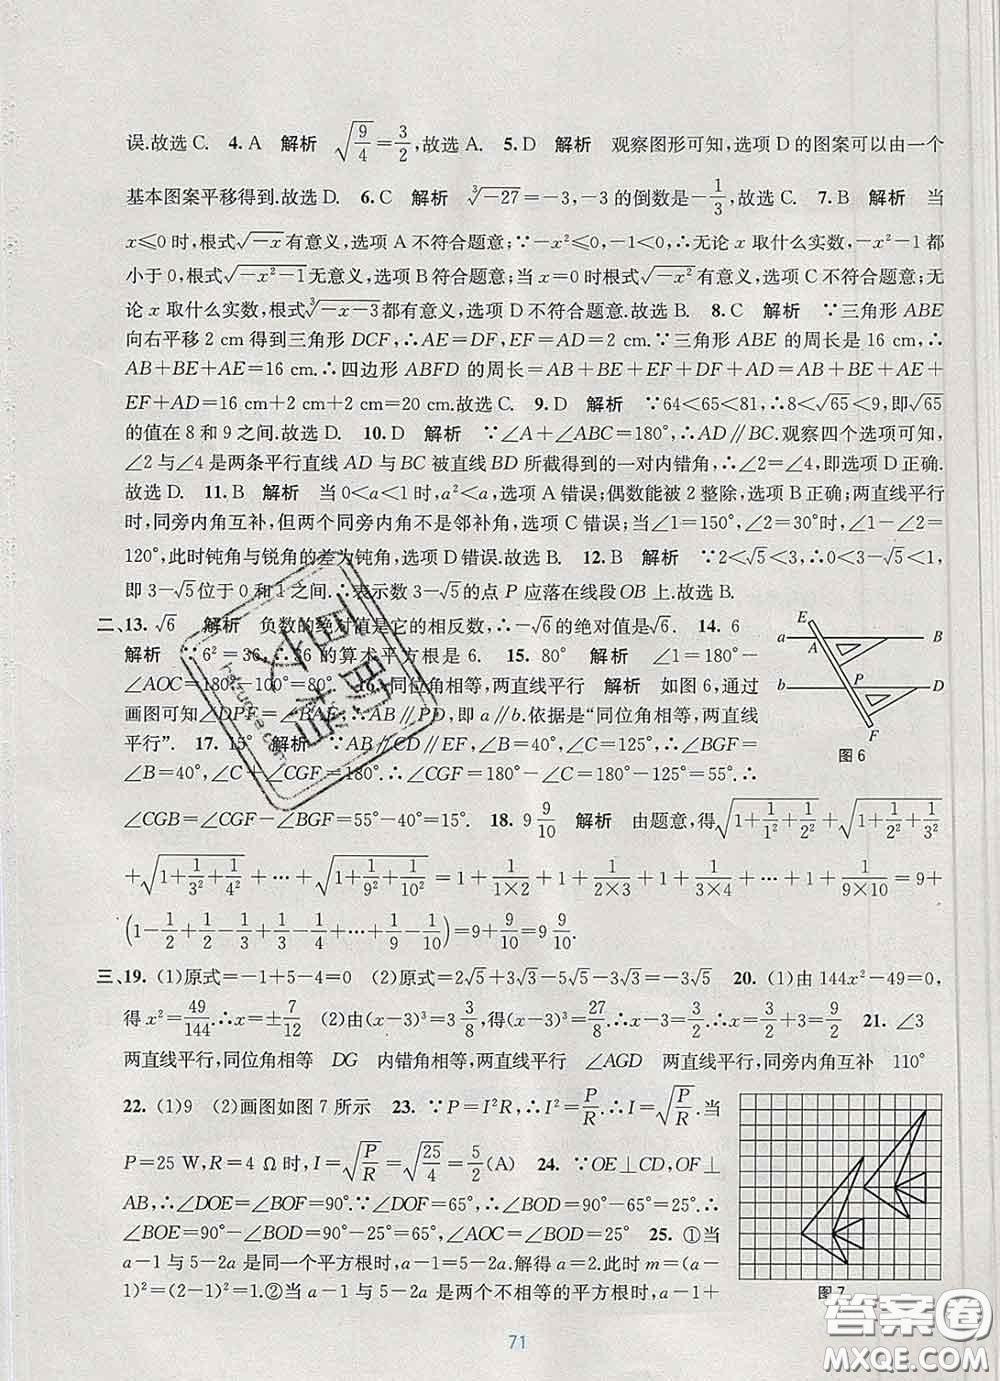 误.故选 C.　4. A　解析　√(9/4)=3/2,故选 A.　5. D　解析　观察图形可知,选项 D 的图案可以由一个
基本图案平移得到.故选 D.　6. C　解析　∛-27=-3,-3 的倒数是-1/3,故选 C.　7. B　解析　当
x≤0 时,根式√-x有意义,选项 A 不符合题意;∵-x²≤0,-1<0,∴无论 x 取什么实数,-x²-1 都
小于 0,根式√(-x²-1)无意义,选项 B 符合题意;当 x=0 时根式√-x²有意义,选项 C 不符合题意;无
论 x 取什么实数,根式∛(-x-3)都有意义,选项 D 不符合题意.故选 B.　8. C　解析　∵三角形 ABE
向右平移 2 cm 得到三角形 DCF,∴AE=DF,EF=AD=2 cm.∵三角形 ABE 的周长是 16 cm,∴
AB+BE+AE=16 cm.∴四边形 ABFD 的周长=AB+BE+EF+DF+AD=AB+BE+AE+
EF+AD=16 cm+2 cm+2 cm=20 cm.故选 C.　9. D　解析　∵64<65<81,∴8<√65<9,即√65
的值在 8 和 9 之间.故选 D.　10. D　解析　∵∠A+∠ABC=180°,∴AD∥BC.观察四个选项可知,
∠2与∠4是两条平行直线 AD 与 BC 被直线 BD 所截得到的一对内错角,∴∠2=∠4,即选项 D 正确.
故选 D.　11. B　解析　当 0<a<1 时,a²<a,选项 A 错误;偶数能被 2 整除,选项 B 正确;两直线平行
时,同旁内角互补,但两个同旁内角不是邻补角,选项 C 错误;当∠1=150°,∠2=30°时,∠1-∠2=
120°,此时钝角与锐角的差为钝角,选项 D 错误.故选 B.　12. B　解析　∵2<√5<3,∴0<3-√5<1,
即 3-√5位于 0 和 1 之间.∴表示数 3-√5的点 P 应落在线段 OB 上.故选 B.
二、13. √6　解析　负数的绝对值是它的相反数,∴-√6的绝对值是√6.　14. 6
解析　∵6²=36,∴36 的算术平方根是 6.　15. 80°　解析　∠1=180°-
∠AOC=180°-100°=80°　16. 同位角相等,两直线平行　解析　如图 6,通过
画图可知∠DPF=∠BAF,∴AB∥PD,即 a∥b.依据是“同位角相等,两直线
平行”.　17. 15°　解析　∵AB∥CD∥EF,∠B=40°,∠C=125°,∴∠BGF=
∠B=40°,∠C+∠CGF=180°.∴∠CGF=180°-∠C=180°-125°=55°.∴
∠CGB=∠CGF-∠BGF=55°-40°=15°.　18. 9 9/10　解析　由题意,得√(1+1/1²+1/2²)+√(1+1/2²+1/3²)
+√(1+1/3²+1/4²)+…+√(1+1/9²+1/10²)=1+1/(1×2)+1+1/(2×3)+1+1/(3×4)+…+1+1/(9×10)=9+
(1-1/2+1/2-1/3+1/3-1/4+…+1/9-1/10)=9+9/10=9 9/10.
三、19. (1)原式=-1+5-4=0　(2)原式=2√5+3√3-5√5-3√3=-3√5　20. (1)由 144x²-49=0,
得 x²=49/144.∴x=±7/12　(2)由(x-3)³=3 3/8,得(x-3)³=27/8.∴x-3=3/2.∴x=3/2+3=9/2　21. ∠3
两直线平行,同位角相等　DG　内错角相等,两直线平行　∠AGD　两直线平行,同旁内角互补　110°
22. (1)9　(2)画图如图 7 所示　23. ∵P=I²R,∴I²=P/R.∴I=√(P/R).当
P=25 W,R=4 Ω 时,I=√(P/R)=√(25/4)=5/2(A)　24. ∵OE⊥CD,OF⊥
AB,∴∠DOE=∠BOF=90°.∵∠DOF=65°,∴∠BOD=90°-65°=25°.∴
∠BOE=90°-∠BOD=90°-25°=65°,∠AOC=∠BOD=25°　25. ①当
a-1 与 5-2a 是同一个平方根时,a-1=5-2a.解得 a=2.此时 m=(a-
1)²=(2-1)²=1.②当 a-1 与 5-2a 是两个不相等的平方根时,a-1+
E
a
A
B
b
P
D
F
图 6
图 7
71
答案圈
MXQE.COM